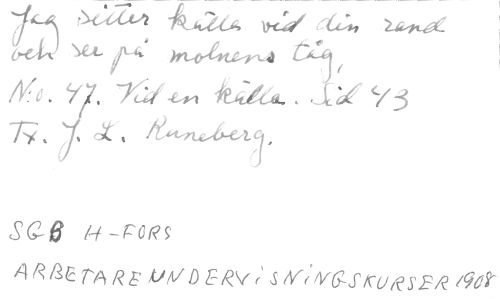 Jag sitter källa vid din rand
och ser på molnens tåg,
N:o. 47. Vid en källa. Sid 43
Tx. J. L. Runeberg.
SGB H-FORS
ARBETAREUNDERVISNINGSKURSER 1908